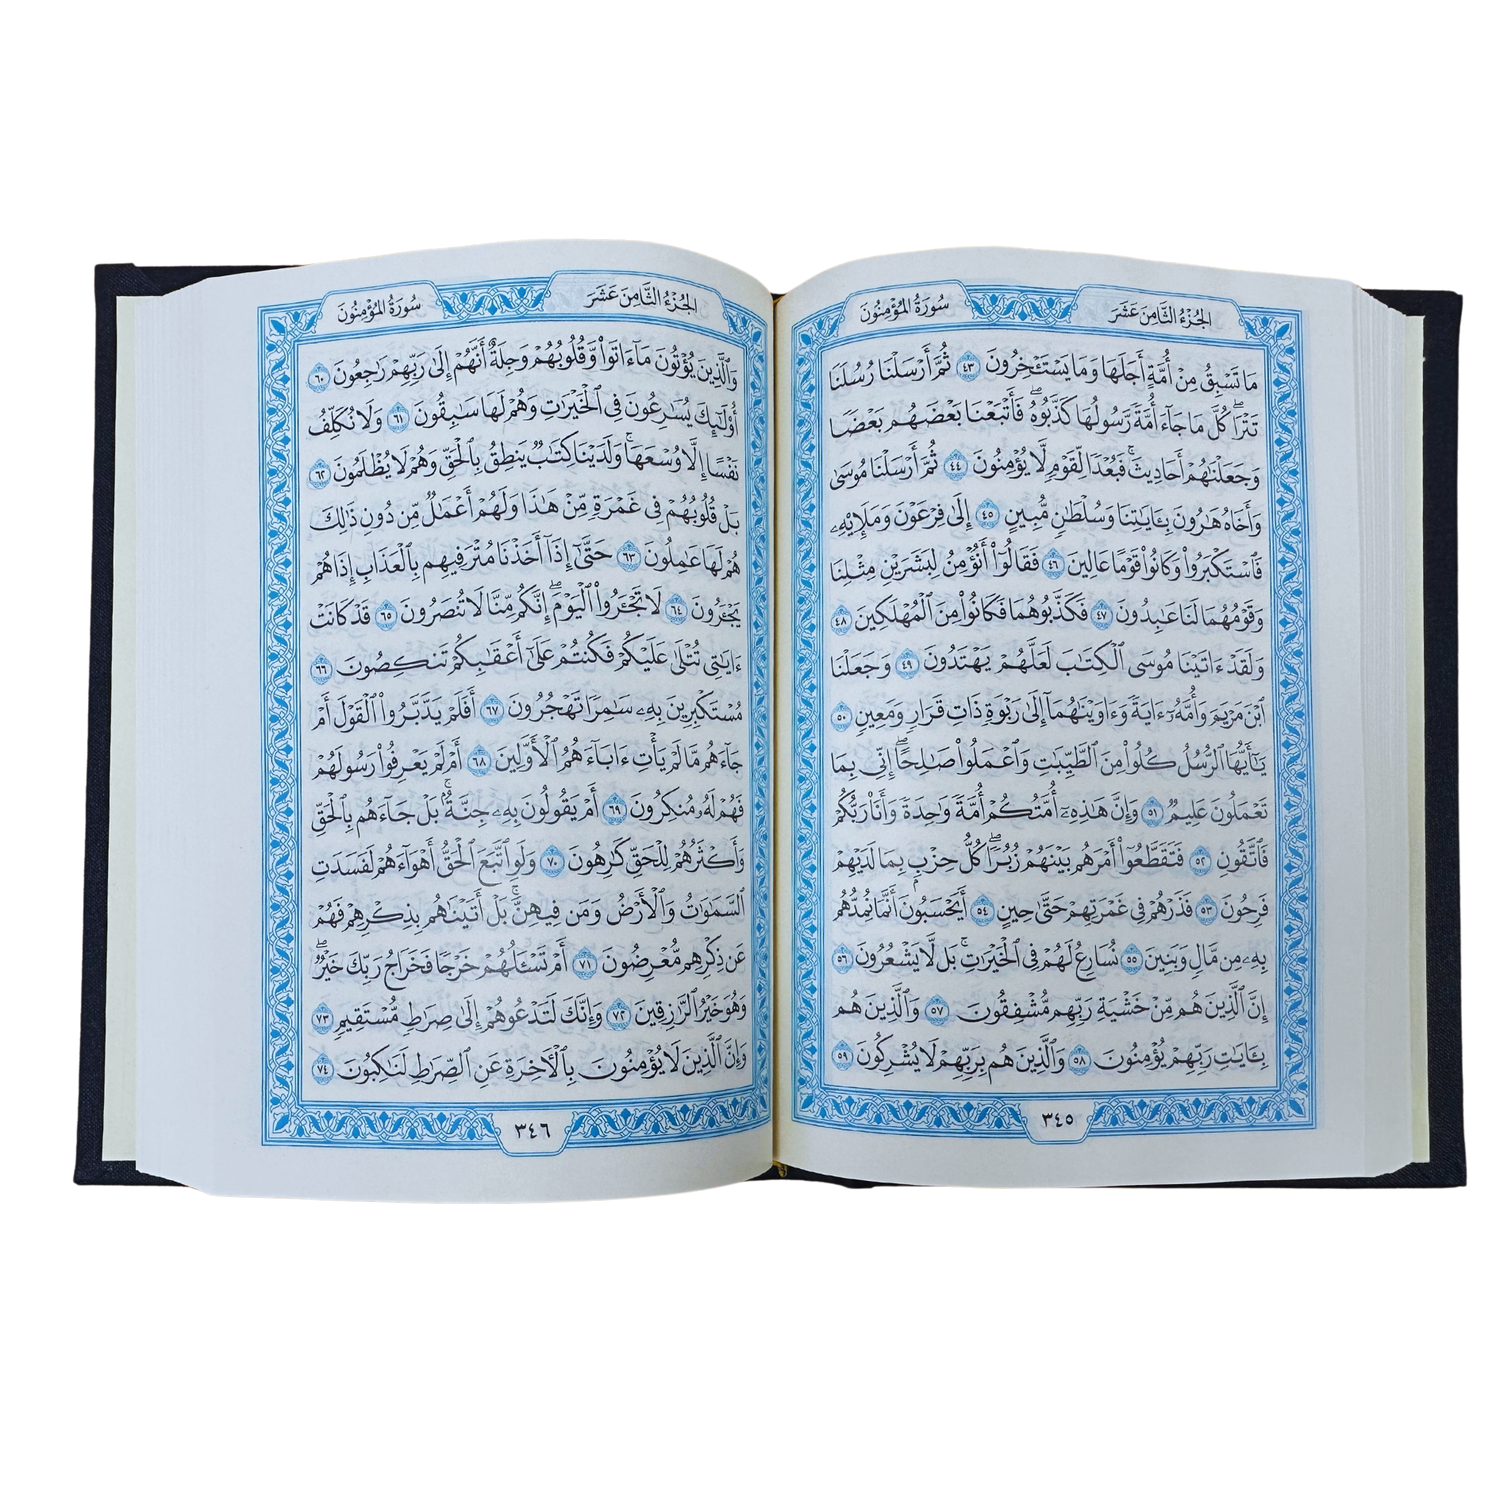 الجزء الثامن عشر
سورة المؤمنون
مَا تَسْبِقُ مِنْ أُمَّةٍ أَجَلَهَا وَمَا يَسْتَـْٔخِرُونَ ٤٣ ثُمَّ أَرْسَلْنَا رُسُلَنَا
تَتْرَا ۖ كُلَّ مَا جَآءَ أُمَّةً رَّسُولُهَا كَذَّبُوهُ ۚ فَأَتْبَعْنَا بَعْضَهُم بَعْضًا
وَجَعَلْنَـٰهُمْ أَحَادِيثَ ۚ فَبُعْدًا لِّقَوْمٍ لَّا يُؤْمِنُونَ ٤٤ ثُمَّ أَرْسَلْنَا مُوسَىٰ
وَأَخَاهُ هَـٰرُونَ بِـَٔايَـٰتِنَا وَسُلْطَـٰنٍ مُّبِينٍ ٤٥ إِلَىٰ فِرْعَوْنَ وَمَلَإِي۟هِۦ
فَٱسْتَكْبَرُوا۟ وَكَانُوا۟ قَوْمًا عَالِينَ ٤٦ فَقَالُوٓا۟ أَنُؤْمِنُ لِبَشَرَيْنِ مِثْلِنَا
وَقَوْمُهُمَا لَنَا عَـٰبِدُونَ ٤٧ فَكَذَّبُوهُمَا فَكَانُوا۟ مِنَ ٱلْمُهْلَكِينَ ٤٨
وَلَقَدْ ءَاتَيْنَا مُوسَى ٱلْكِتَـٰبَ لَعَلَّهُمْ يَهْتَدُونَ ٤٩ وَجَعَلْنَا
ٱبْنَ مَرْيَمَ وَأُمَّهُۥٓ ءَايَةً وَءَاوَيْنَـٰهُمَآ إِلَىٰ رَبْوَةٍ ذَاتِ قَرَارٍ وَمَعِينٍ ٥٠
يَـٰٓأَيُّهَا ٱلرُّسُلُ كُلُوا۟ مِنَ ٱلطَّيِّبَـٰتِ وَٱعْمَلُوا۟ صَـٰلِحًا ۖ إِنِّى بِمَا
تَعْمَلُونَ عَلِيمٌ ٥١ وَإِنَّ هَـٰذِهِۦٓ أُمَّتُكُمْ أُمَّةً وَٰحِدَةً وَأَنَا۠ رَبُّكُمْ
فَٱتَّقُونِ ٥٢ فَتَقَطَّعُوٓا۟ أَمْرَهُم بَيْنَهُمْ زُبُرًا ۖ كُلُّ حِزْبٍۭ بِمَا لَدَيْهِمْ
فَرِحُونَ ٥٣ فَذَرْهُمْ فِى غَمْرَتِهِمْ حَتَّىٰ حِينٍ ٥٤ أَيَحْسَبُونَ أَنَّمَا نُمِدُّهُم
بِهِۦ مِن مَّالٍ وَبَنِينَ ٥٥ نُسَارِعُ لَهُمْ فِى ٱلْخَيْرَٰتِ ۚ بَل لَّا يَشْعُرُونَ ٥٦
إِنَّ ٱلَّذِينَ هُم مِّنْ خَشْيَةِ رَبِّهِم مُّشْفِقُونَ ٥٧ وَٱلَّذِينَ هُم
بِـَٔايَـٰتِ رَبِّهِمْ يُؤْمِنُونَ ٥٨ وَٱلَّذِينَ هُم بِرَبِّهِمْ لَا يُشْرِكُونَ ٥٩
٣٤٥
الجزء الثامن عشر
سورة المؤمنون
وَٱلَّذِينَ يُؤْتُونَ مَآ ءَاتَوا۟ وَّقُلُوبُهُمْ وَجِلَةٌ أَنَّهُمْ إِلَىٰ رَبِّهِمْ رَٰجِعُونَ ٦٠
أُو۟لَـٰٓئِكَ يُسَـٰرِعُونَ فِى ٱلْخَيْرَٰتِ وَهُمْ لَهَا سَـٰبِقُونَ ٦١ وَلَا نُكَلِّفُ
نَفْسًا إِلَّا وُسْعَهَا ۖ وَلَدَيْنَا كِتَـٰبٌ يَنطِقُ بِٱلْحَقِّ ۚ وَهُمْ لَا يُظْلَمُونَ ٦٢
بَلْ قُلُوبُهُمْ فِى غَمْرَةٍ مِّنْ هَـٰذَا وَلَهُمْ أَعْمَـٰلٌ مِّن دُونِ ذَٰلِكَ
هُمْ لَهَا عَـٰمِلُونَ ٦٣ حَتَّىٰٓ إِذَآ أَخَذْنَا مُتْرَفِيهِم بِٱلْعَذَابِ إِذَا هُمْ
يَجْـَٔرُونَ ٦٤ لَا تَجْـَٔرُوا۟ ٱلْيَوْمَ ۖ إِنَّكُم مِّنَّا لَا تُنصَرُونَ ٦٥ قَدْ كَانَتْ
ءَايَـٰتِى تُتْلَىٰ عَلَيْكُمْ فَكُنتُمْ عَلَىٰٓ أَعْقَـٰبِكُمْ تَنكِصُونَ ٦٦
مُسْتَكْبِرِينَ بِهِۦ سَـٰمِرًا تَهْجُرُونَ ٦٧ أَفَلَمْ يَدَّبَّرُوا۟ ٱلْقَوْلَ أَمْ
جَآءَهُم مَّا لَمْ يَأْتِ ءَابَآءَهُمُ ٱلْأَوَّلِينَ ٦٨ أَمْ لَمْ يَعْرِفُوا۟ رَسُولَهُمْ
فَهُمْ لَهُۥ مُنكِرُونَ ٦٩ أَمْ يَقُولُونَ بِهِۦ جِنَّةٌۢ ۚ بَلْ جَآءَهُم بِٱلْحَقِّ
وَأَكْثَرُهُمْ لِلْحَقِّ كَـٰرِهُونَ ٧٠ وَلَوِ ٱتَّبَعَ ٱلْحَقُّ أَهْوَآءَهُمْ لَفَسَدَتِ
ٱلسَّمَـٰوَٰتُ وَٱلْأَرْضُ وَمَن فِيهِنَّ ۚ بَلْ أَتَيْنَـٰهُم بِذِكْرِهِمْ فَهُمْ
عَن ذِكْرِهِم مُّعْرِضُونَ ٧١ أَمْ تَسْـَٔلُهُمْ خَرْجًا فَخَرَاجُ رَبِّكَ خَيْرٌ ۖ
وَهُوَ خَيْرُ ٱلرَّٰزِقِينَ ٧٢ وَإِنَّكَ لَتَدْعُوهُمْ إِلَىٰ صِرَٰطٍ مُّسْتَقِيمٍ ٧٣
وَإِنَّ ٱلَّذِينَ لَا يُؤْمِنُونَ بِٱلْـَٔاخِرَةِ عَنِ ٱلصِّرَٰطِ لَنَـٰكِبُونَ ٧٤
٣٤٦